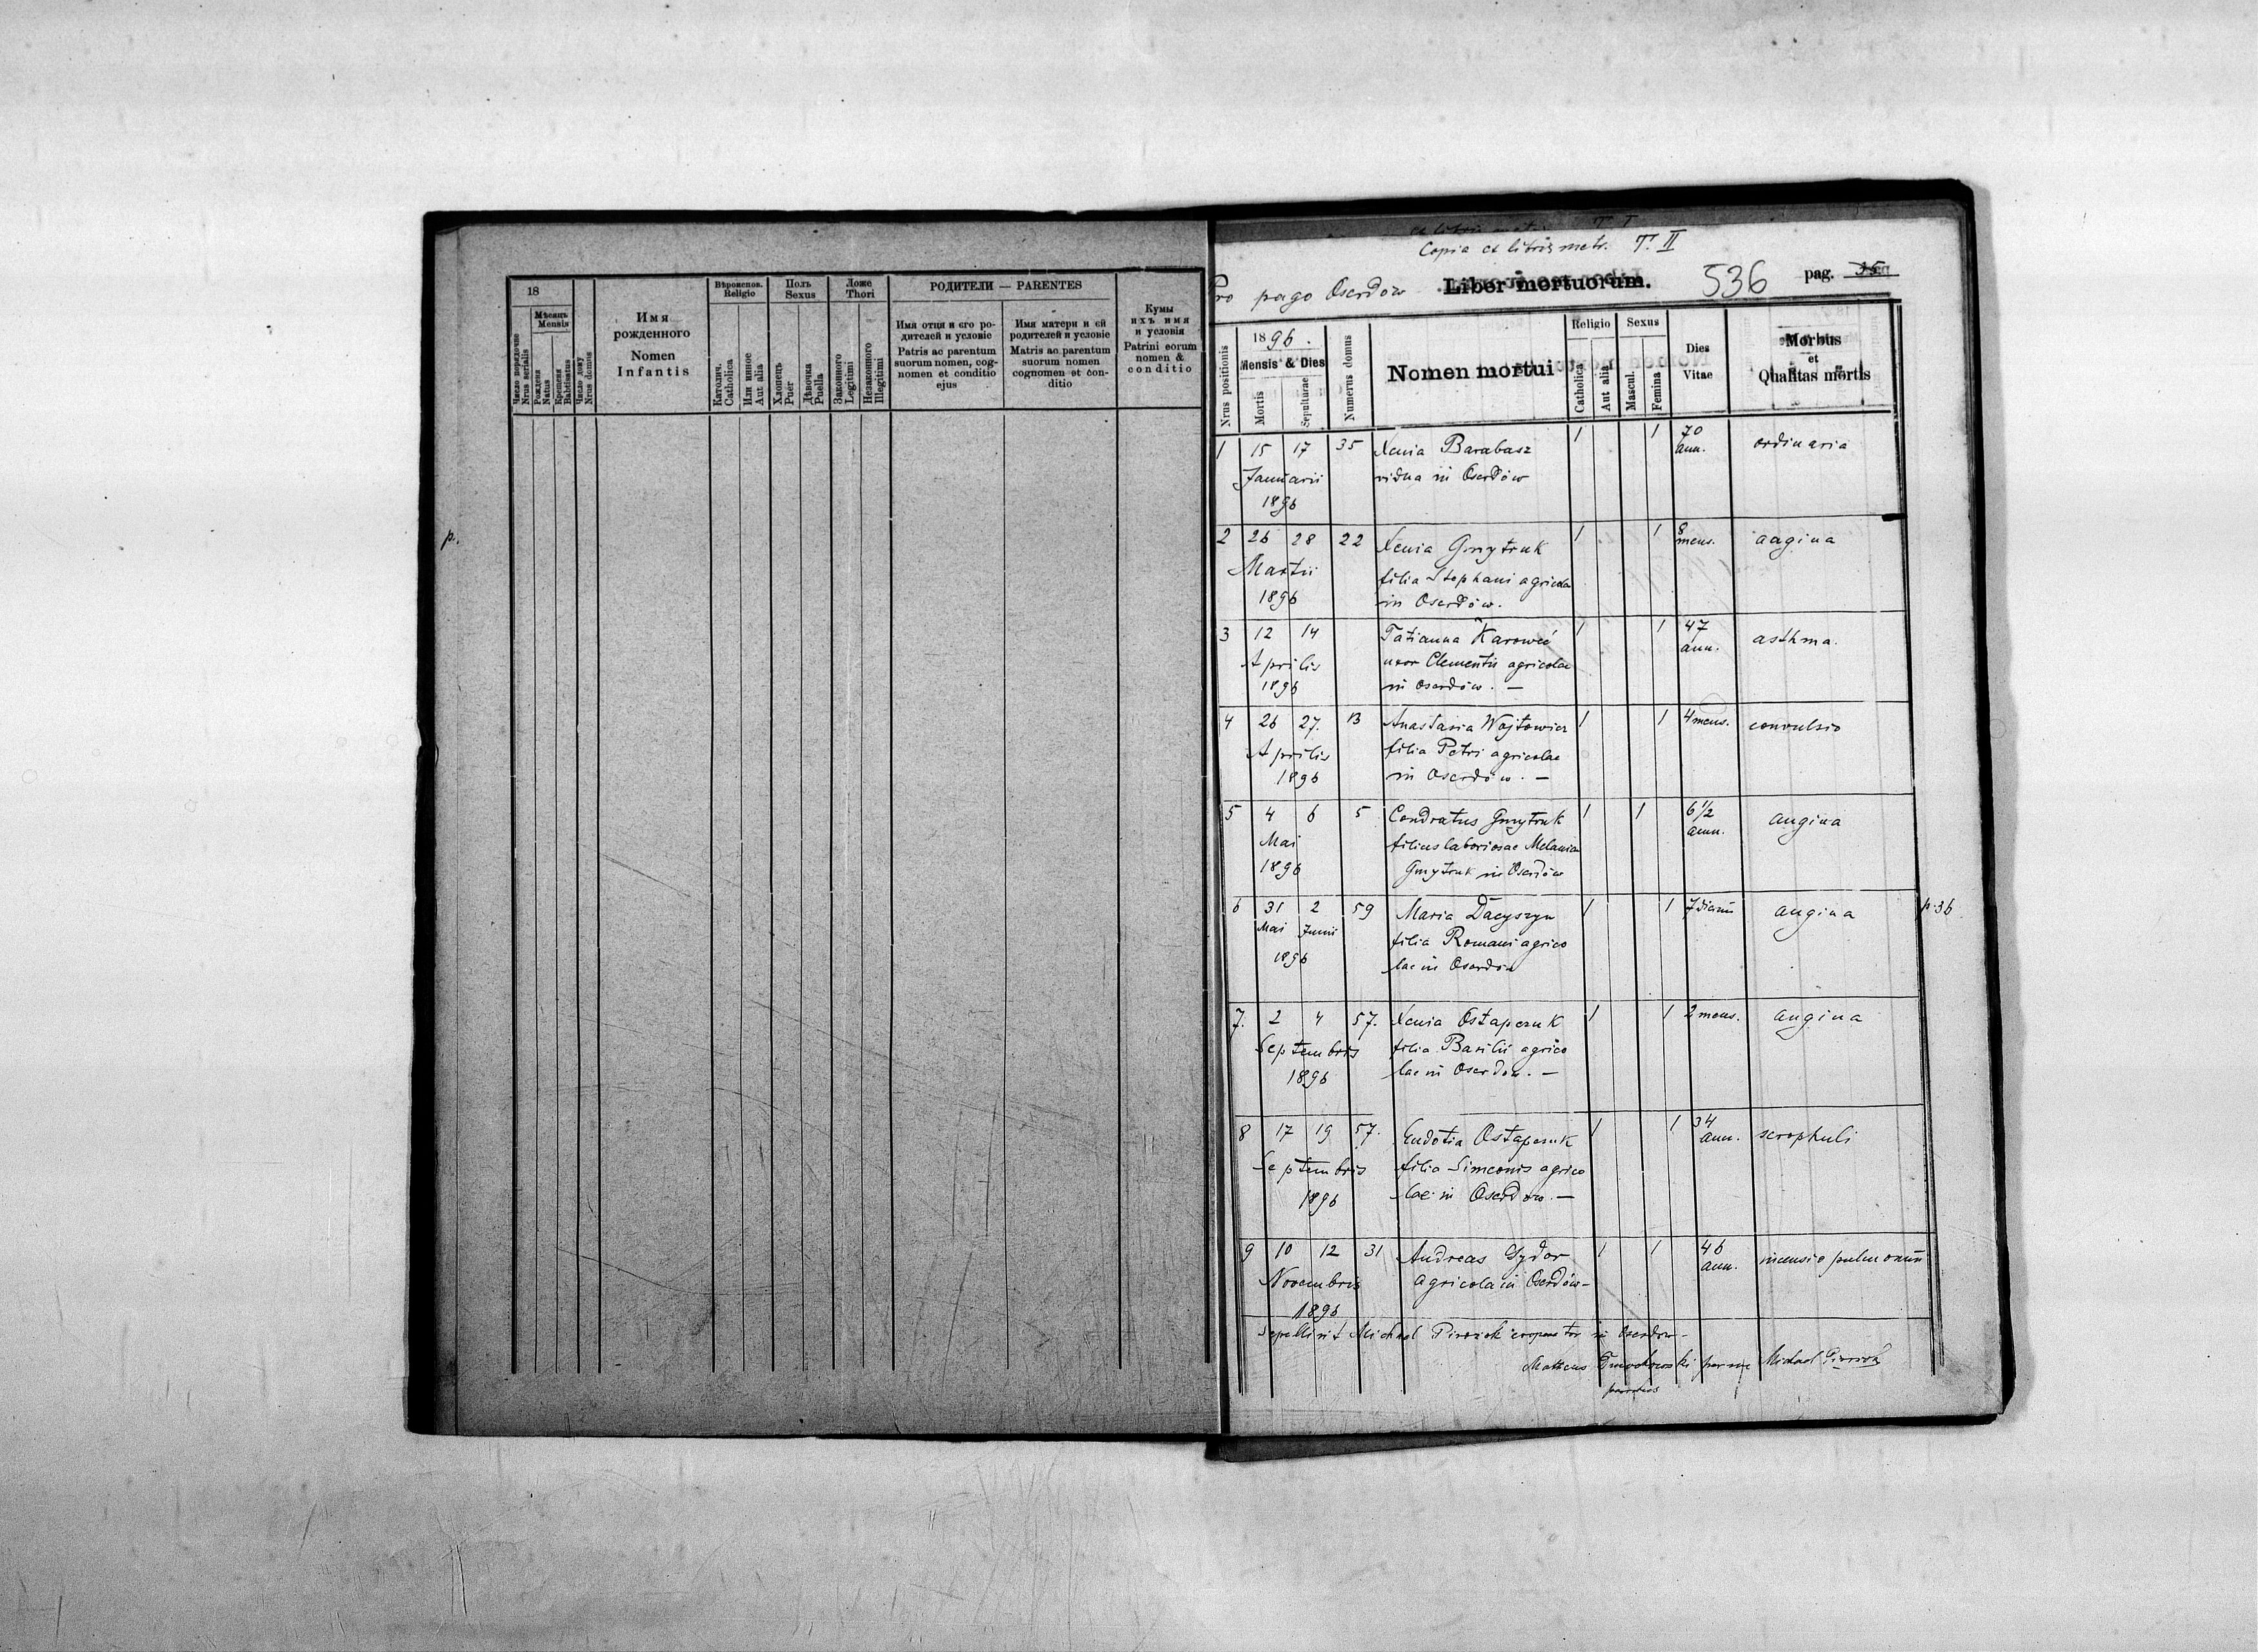 p.
18
Мѣсяць
Mensis
Число порядочне
Nrus serialis
Рожденя
Natus
Крещеня
Babtisatus
Число дому
Nrus domus
Имя
рожденного
Nomen
Infantis
Вѣроиспов.
Religio
Католич.
Catholica
Или инное
Aut alia
Полъ
Sexus
Хлопець
Puer
Дѣвочка
Puella
Ложе
Thori
Законного
Legitimi
Незаконного
Illegitimi
РОДИТЕЛИ — PARENTES
Имя отця и єго ро-
дителей и условіє
Patris ac parentum
suorum nomen, cog-
nomen et conditio
ejus
Имя матери и єй
родителей и условіє
Matris ac parentum
suorum nomen
cognomen et con-
ditio
Кумы
ихъ имя
и условія
Patrini eorum
nomen &
conditio
Copia ex libris metr. T. II
Pro pago Oserdów Liber mortuorum. 536 pag. 35
Nrus positionis
1896.
Mensis & Dies
Mortis
Sepulturae
Numerus domus
Nomen mortui
Religio
Catholica
Aut alia
Sexus
Mascul.
Femina
Dies
Vitae
Morbus
et
Qualitas mortis
1 15 17 35 Xenia Barabasz 1 1 70 ann. ordinaria
Januarii vidua in Oserdów
1896
2 26 28 22 Xenia Gmytruk 1 1 8 mens. angina
Martii filia Stephani agricolae
1896 in Oserdów.
3 12 14 Tatianna Karoweć 1 1 47 ann. asthma.
Aprilis uxor Clementii agricolae
1896 in Oserdów. —
4 26 27. 13 Anastasia Wojtowicz 1 1 4 mens. convulsio
Aprilis filia Petri agricolae
1896 in Oserdów. —
5 4 6 5 Condratus Gmytruk 1 1 6 1/2 ann. angina
Mai filius laboriosae Melaniae
1896 Gmytruk in Oserdów
6 31 2 59 Maria Dacyszyn 1 1 7 dierum angina p. 36
Mai Junii filia Romani agrico
1896 lae in Oserdów
7. 2 4 57. Xenia Ostapczuk 1 1 2 mens. angina
Septembris filia Basilii agrico
1896 lae in Oserdow. —
8 17 19 57. Eudotia Ostapczuk 1 1 34 ann. scrophuli
Septembris filia Simeonis agrico
1896 lae in Oserdow. —
9 10 12 31 Andreas Gydor 1 1 46 ann. pulmonum
Novembris agricola in Oserdów —
1896
Sepelivit Michael Pirozok cooperator in Oserdow —
Matheus per me Michael Pirozok
parochus